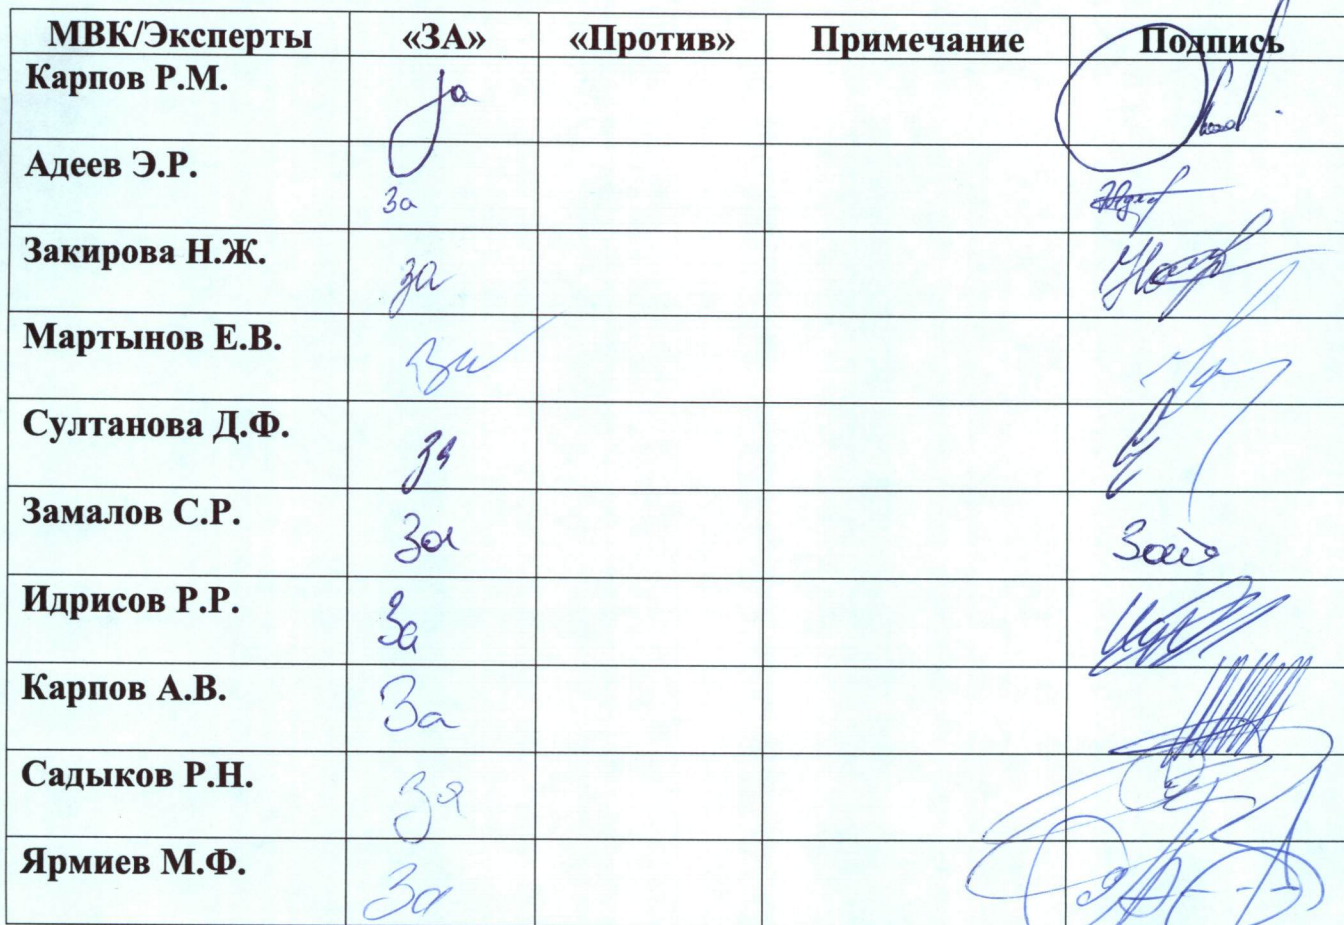 МВК/Эксперты «ЗА» «Против» Примечание Подпись
Карпов Р.М. за
Адеев Э.Р. за
Закирова Н.Ж. за
Мартынов Е.В. за
Султанова Д.Ф. за
Замалов С.Р. За
Идрисов Р.Р. За
Карпов А.В. За
Садыков Р.Н. За
Ярмиев М.Ф. За